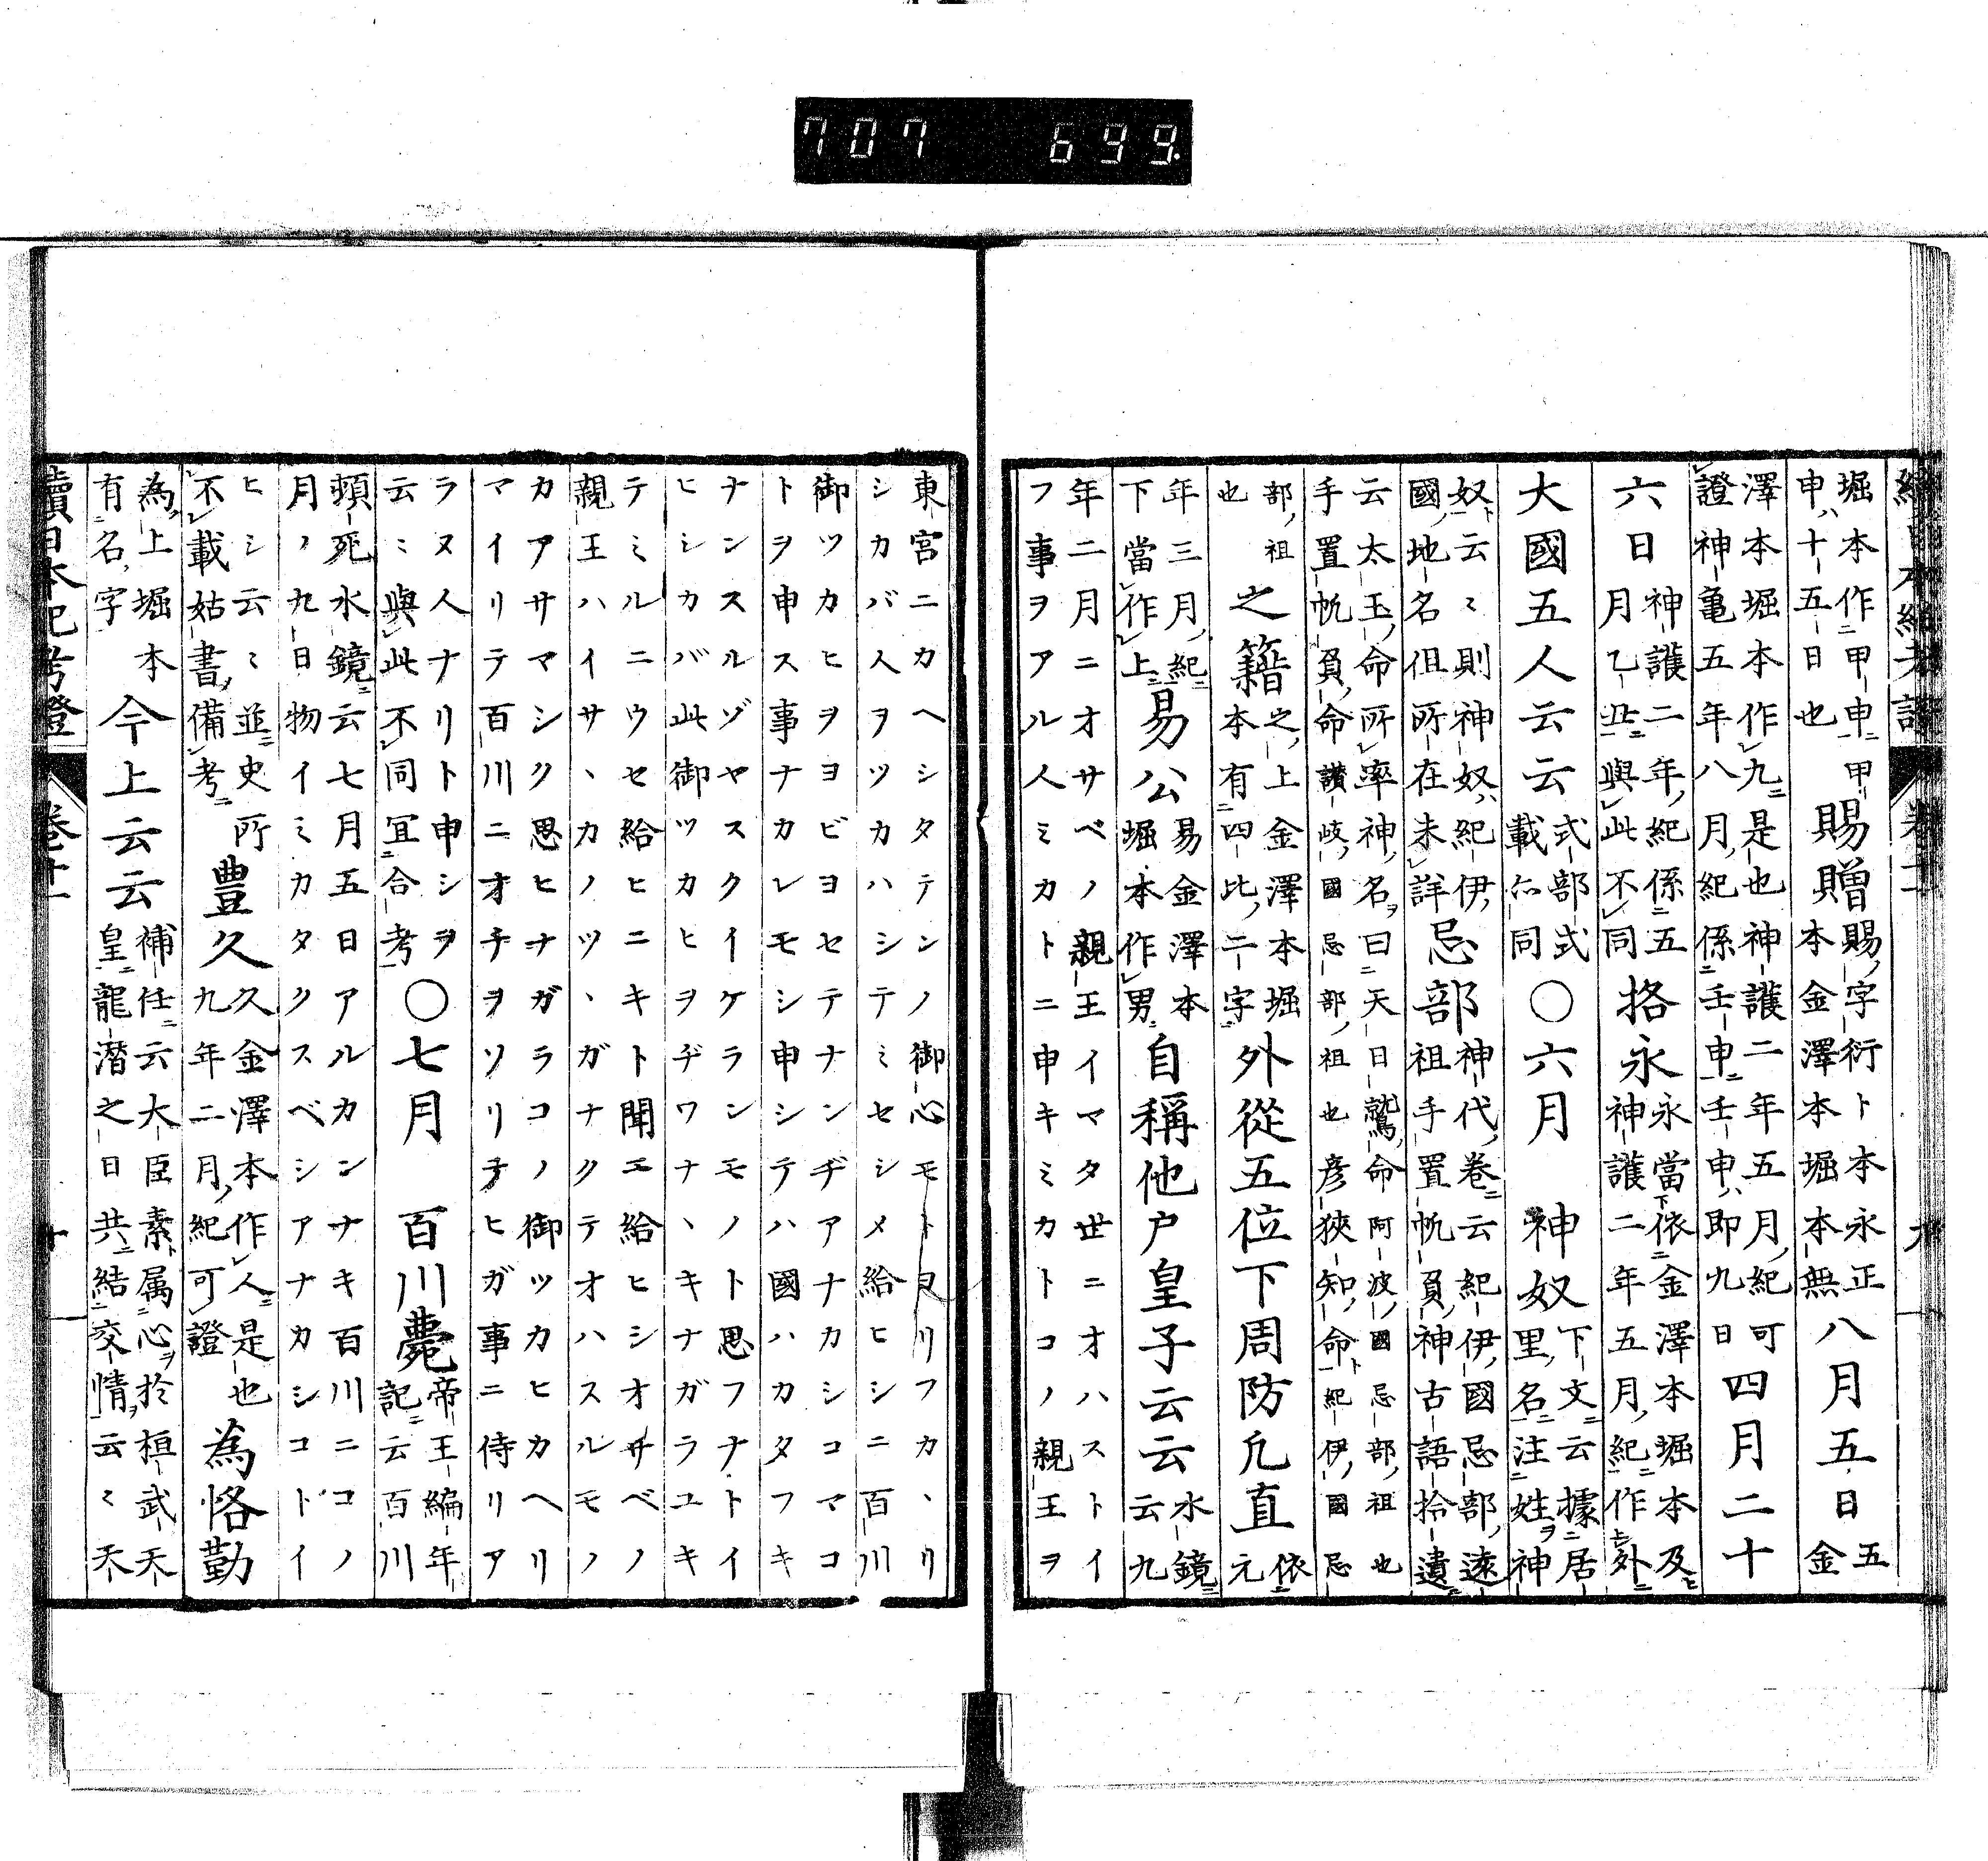 續日本紀考證
堀本作甲申甲
申十五日也
賜贈
賜字衍卜本永正
本金澤本堀本無
八月五日
五
金
澤本堀本作九是也神護二年五月紀可
證神亀五年八月紀係壬申壬申即九日
四月二十
六日
神護二年紀係五
月乙丑與此不同
挌永
永當依金澤本堀本及
神護二年五月紀作外
大國五人云云
式部式
載仝同
○六月
神奴
下文云據居
里名注姓神
奴云〻則神奴紀伊
國地名但所在未詳
忌部
神代巻云紀伊國忌部遠
祖手置帆負神古語拾遺
云太玉命所率神名曰天日鷲命阿波國忌部祖也
手置帆負命讃岐國忌部祖也彦狹知命紀伊國忌
部祖
也
之籍
之上金澤本堀
本有四比二字
外從五位下周防凡直
依
元
年三月紀
下當作上
易公
易金澤本
堀本作男
自稱他户皇子云云
水鏡
云九
年二月ニオサベノ親王イマタ世ニオハストイ
フ事ヲアル人ミカトニ申キミカトコノ親王ヲ
東宮ニカヘシタテンノ御心モトヨリフカヽリ
シカバ人ヲツカハシテミセシメ給ヒシニ百川
御ツカヒヲヨビヨセテナンヂアナカシコマコ
トヲ申ス事ナカレモシ申シテハ國ハカタフキ
ナンスルゾヤスクイケランモノト思フナトイ
ヒシカバ此御ツカヒヲヂワナヽキナガラユキ
テミルニウセ給ヒニキト聞エ給ヒシオサベノ
親王ハイサヽカノツヽガナクテオハスルモノ
カアサマシク思ヒナガラコノ御ツカヒカヘリ
マイリテ百川ニオチヲソリテヒガ事ニ侍リア
ラヌ人ナリト申シヲ
云〻與此不同冝合考
○七月
百川薨
帝王編年
記云百川
頓死水鏡云七月五日アルカンナキ百川ニコノ
月ノ九日物イミカタクスベシアナカシコトイ
ヒシ云〻並史所
不載姑書備考
豊久
久金澤本作人是也
九年二月紀可證
為恪勤
為上堀本
有名字
今上云云
補任云大臣素属心於桓武天
皇龍潜之日共結交情云〻天
續日本紀考證
卷十一
十
707 699.